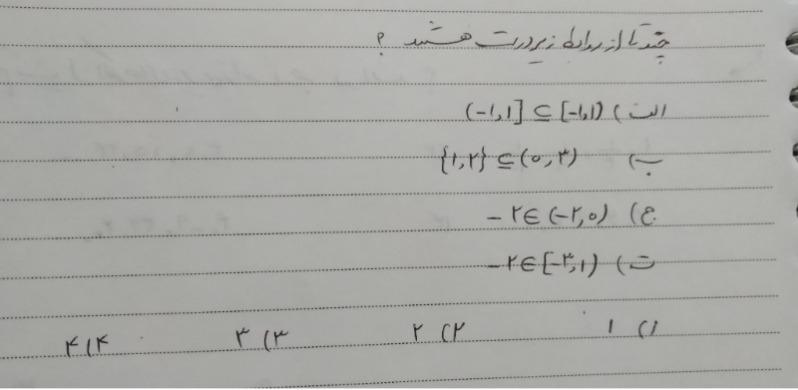 چندتا از روابط زیر درست هستند ؟
الف) (-۱,۱] ⊆ [-۱,۱)
ب) {۱,۲} ⊆ (۰,۳)
ج) -۲ ∈ (-۲,۰)
ت) -۲ ∈ [-۳,۱)
۱) ۱ ۲) ۲ ۳) ۳ ۴) ۴